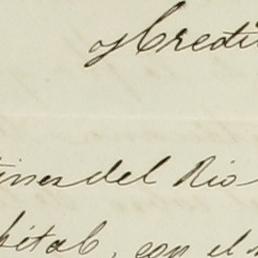 y Credit
tines del Rio
pital, con el